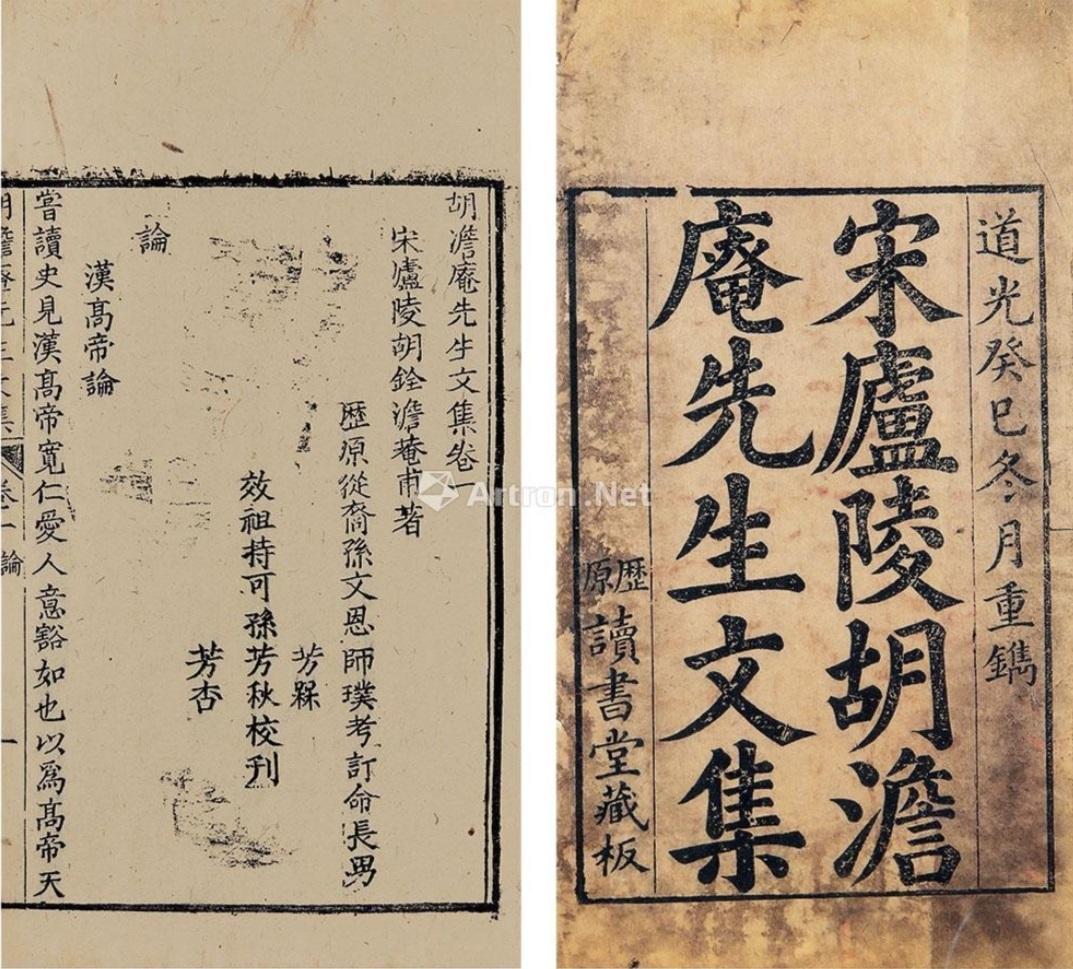 道光癸巳冬月重鐫
宋廬陵胡澹
庵先生文集
歷原讀書堂藏板
胡澹庵先生文集卷一
宋廬陵胡銓澹菴甫著
歷原從裔孫文恩師璞考訂命長男
芳槑
效祖持可孫芳秋校刊
芳杏
論
漢高帝論
嘗讀史見漢高帝寬仁愛人意豁如也以爲高帝天
胡澹庵先生文集 卷一 論 一
Artron.Net